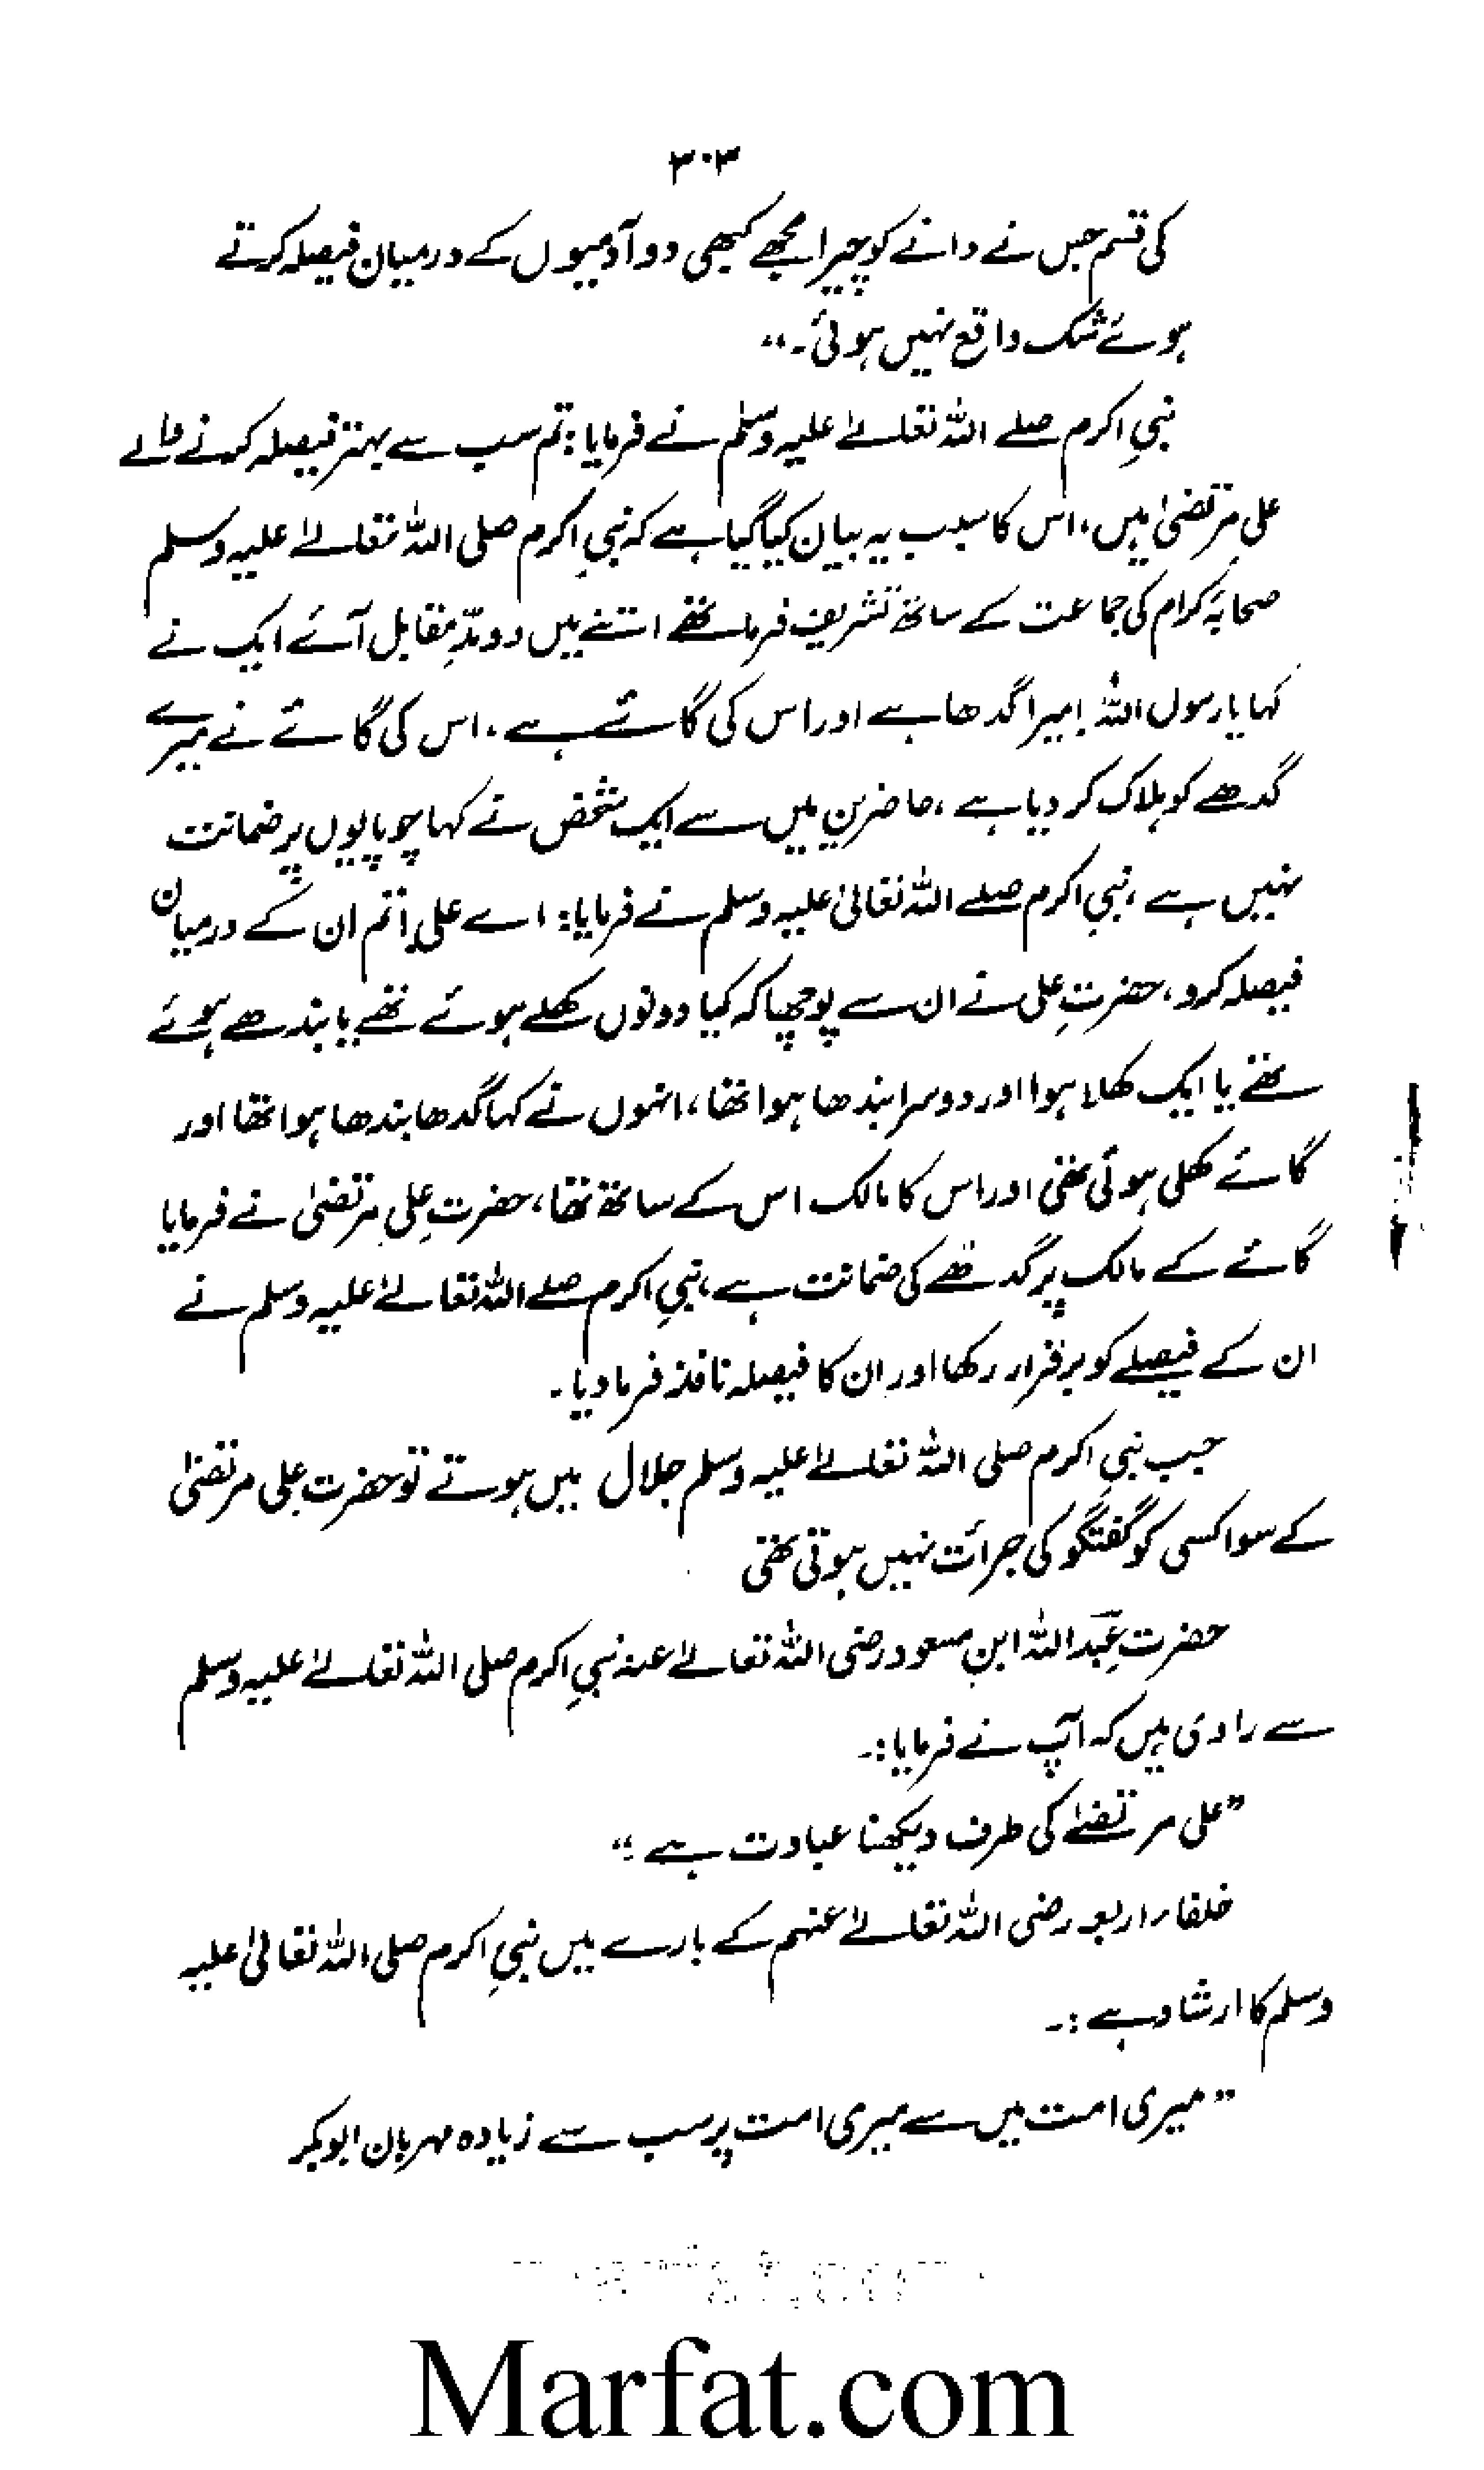 ۳۰۳
کی قسم جس نے دانے کو چیرا مجھے کبھی دو آدمیوں کے درمیان فیصلہ کرتے
ہوئے شک واقع نہیں ہوئی۔"
نبیِ اکرم صلے اللہ تعالےٰ علیہ وسلم نے فرمایا: تم سب سے بہتر فیصلہ کرنے والے
علیِ مرتضیٰ ہیں، اس کا سبب یہ بیان کیا گیا ہے کہ نبیِ اکرم صلی اللہ تعالےٰ علیہ وسلم
صحابۂ کرام کی جماعت کے ساتھ تشریف فرما تھے اتنے میں دو مدِّ مقابل آئے ایک نے
کہا یا رسول اللہ! میرا گدھا ہے اور اس کی گائے ہے، اس کی گائے نے میرے
گدھے کو ہلاک کر دیا ہے، حاضرین میں سے ایک شخص نے کہا چوپایوں پر ضمانت
نہیں ہے، نبیِ اکرم صلے اللہ تعالیٰ علیہ وسلم نے فرمایا: اے علی! تم ان کے درمیان
فیصلہ کرو، حضرتِ علی نے ان سے پوچھا کہ کیا دونوں کھلے ہوئے تھے یا بندھے ہوئے
تھے یا ایک کھلا ہوا اور دوسرا بندھا ہوا تھا، انہوں نے کہا گدھا بندھا ہوا تھا اور
گائے کھلی ہوئی تھی اور اس کا مالک اس کے ساتھ تھا، حضرتِ علی مرتضیٰ نے فرمایا
گائے کے مالک پر گدھے کی ضمانت ہے، نبیِ اکرم صلے اللہ تعالےٰ علیہ وسلم نے
ان کے فیصلے کو برقرار رکھا اور ان کا فیصلہ نافذ فرما دیا۔
جب نبیِ اکرم صلی اللہ تعالےٰ علیہ وسلم جلال میں ہوتے تو حضرت علی مرتضیٰ
کے سوا کسی کو گفتگو کی جرائت نہیں ہوتی تھی
حضرت عبد اللہ ابنِ مسعود رضی اللہ تعالےٰ عنہ نبیِ اکرم صلی اللہ تعالےٰ علیہ وسلم
سے راوی ہیں کہ آپ نے فرمایا:۔
"علی مرتضےٰ کی طرف دیکھنا عبادت ہے؛"
خلفاء اربعہ رضی اللہ تعالےٰ عنہم کے بارے میں نبیِ اکرم صلی اللہ تعالیٰ علیہ
وسلم کا ارشاد ہے:۔
"میری امت میں سے میری امت پر سب سے زیادہ مہربان ابوبکر
Marfat.com